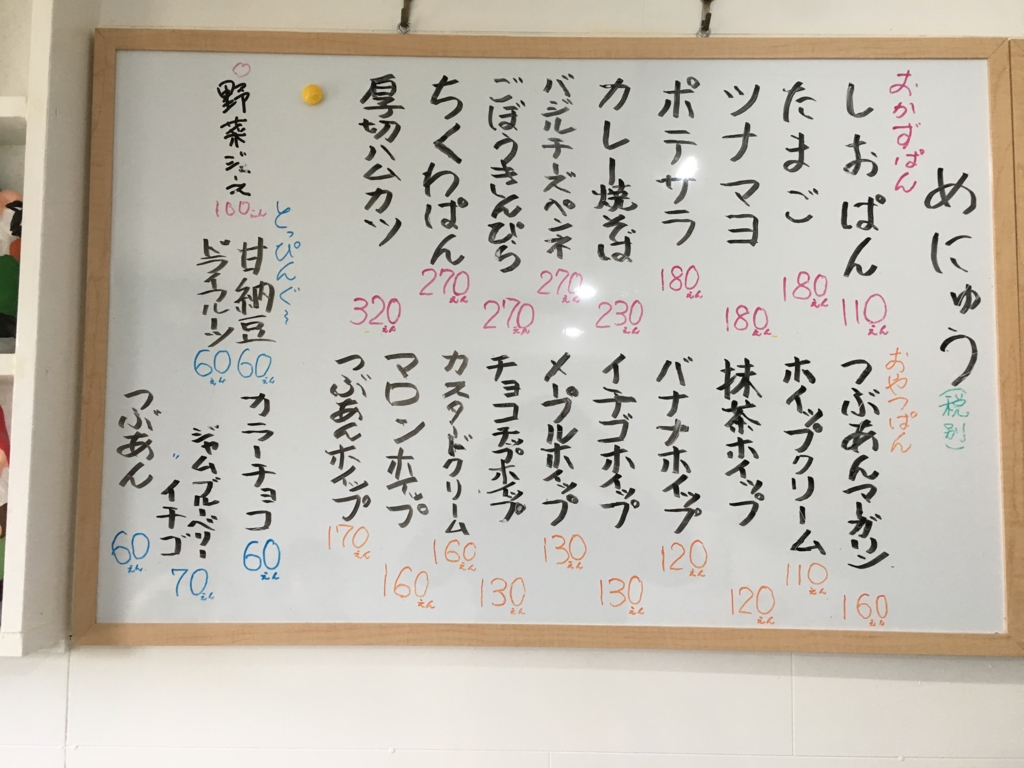 めにゅう(税別)
おかずぱん
しおぱん 110えん
たまご 180えん
ツナマヨ 180えん
ポテサラ 180えん
カレー焼そば 230えん
バジルチーズペンネ 270えん
ごぼうきんぴら 270えん
ちくわぱん 270えん
厚切ハムカツ 320えん
おやつぱん
つぶあんマーガリン 160えん
ホイップクリーム 110えん
抹茶ホイップ 120えん
バナナホイップ 120えん
イチゴホイップ 130えん
メープルホイップ 130えん
チョコチップホイップ 130えん
カスタードクリーム 160えん
マロンホイップ 160えん
つぶあんホイップ 170えん
野菜ジュース 100えん
とっぴんぐ~
甘納豆 60えん
ドライフルーツ 60えん
カラーチョコ 60えん
ジャムブルーベリー
〃 イチゴ 70えん
つぶあん 60えん